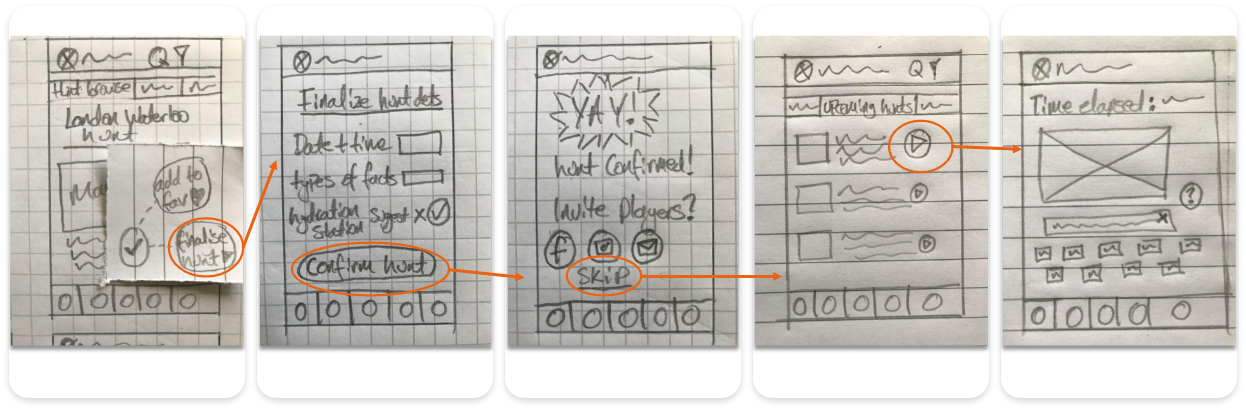 Hunt browse
London Waterloo
hunt
Ma
add to
fav
finalise
hunt
Finalize hunt dets
Date + time
types of facts
hydration
station
suggest
Confirm hunt
YAY!
hunt Confirmed!
Invite Players?
f
SKIP
Upcoming hunts
Time elapsed:
?